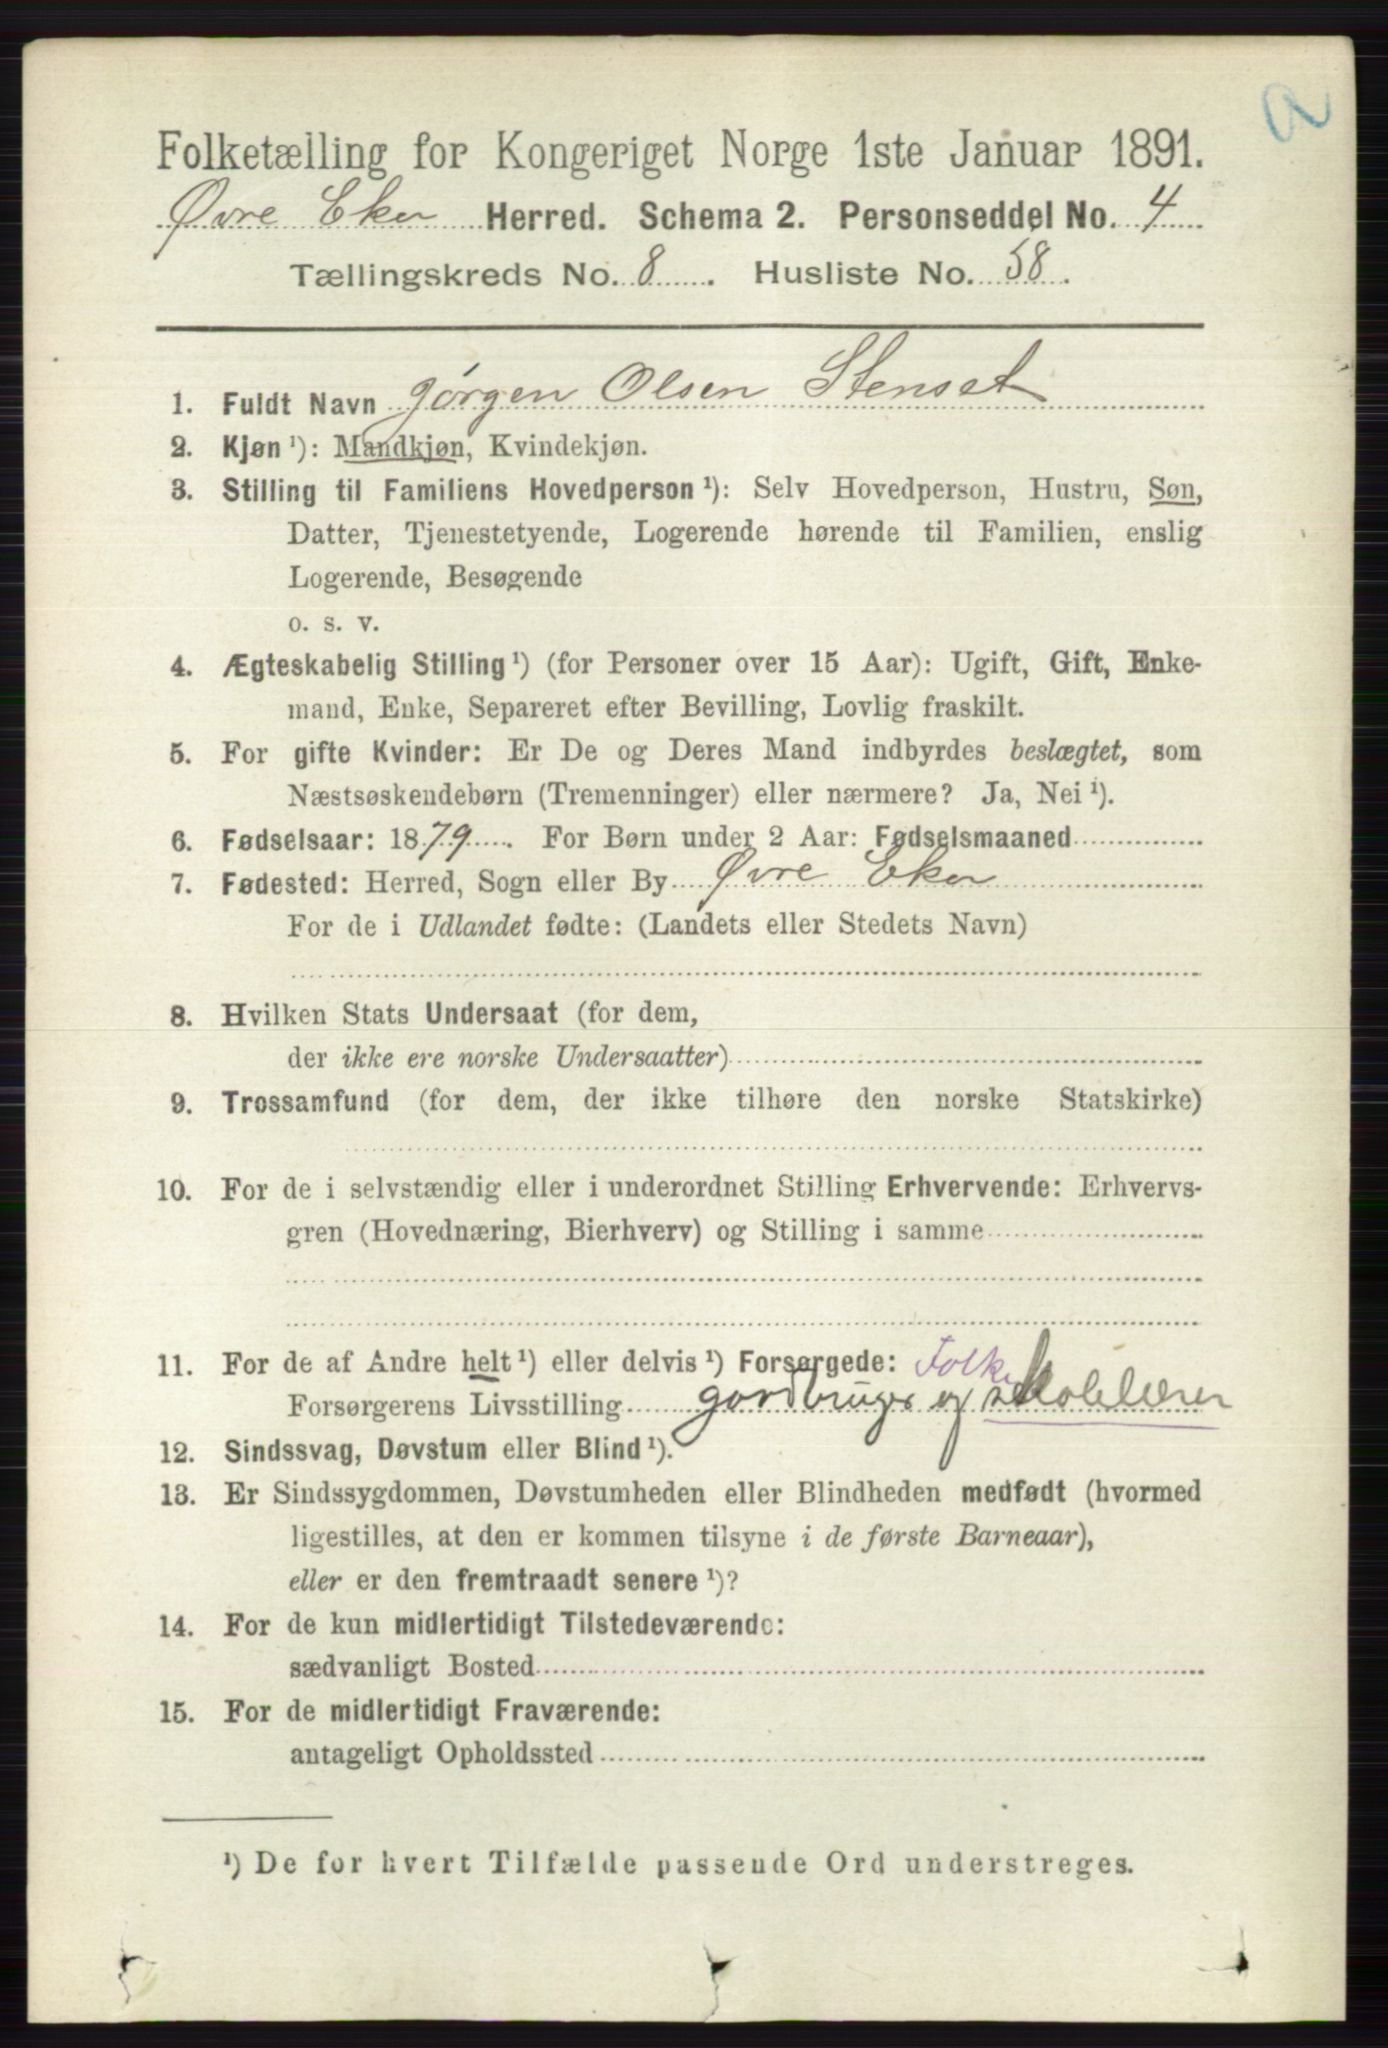 a
Folketælling for Kongeriget Norge 1ste Januar 1891.
Øvre Eker Herred. Schema 2. Personseddel No. 4
Tællingskreds No. 8. Husliste No. 58.
1. Fuldt Navn Jørgen Olsen Stenset
2. Kjøn ¹): Mandkjøn, Kvindekjøn.
3. Stilling til Familiens Hovedperson ¹): Selv Hovedperson, Hustru, Søn,
Datter, Tjenestetyende, Logerende hørende til Familien, enslig
Logerende, Besøgende
o. s. v.
4. Ægteskabelig Stilling ¹) (for Personer over 15 Aar): Ugift, Gift, Enke-
mand, Enke, Separeret efter Bevilling, Lovlig fraskilt.
5. For gifte Kvinder: Er De og Deres Mand indbyrdes beslægtet, som
Næstsøskendebørn (Tremenninger) eller nærmere? Ja, Nei ¹).
6. Fødselsaar: 1879. For Børn under 2 Aar: Fødselsmaaned
7. Fødested: Herred, Sogn eller By Øvre Eker
For de i Udlandet fødte: (Landets eller Stedets Navn)
8. Hvilken Stats Undersaat (for dem,
der ikke ere norske Undersaatter)
9. Trossamfund (for dem, der ikke tilhøre den norske Statskirke)
10. For de i selvstændig eller i underordnet Stilling Erhvervende: Erhvervs-
gren (Hovednæring, Bierhverv) og Stilling i samme
11. For de af Andre helt ¹) eller delvis ¹) Forsørgede: Folke
Forsørgerens Livsstilling gardbruger og skolelærer
12. Sindssvag, Døvstum eller Blind ¹).
13. Er Sindssygdommen, Døvstumheden eller Blindheden medfødt (hvormed
ligestilles, at den er kommen tilsyne i de første Barneaar),
eller er den fremtraadt senere ¹)?
14. For de kun midlertidigt Tilstedeværende:
sædvanligt Bosted
15. For de midlertidigt Fraværende:
antageligt Opholdssted
¹) De for hvert Tilfælde passende Ord understreges.